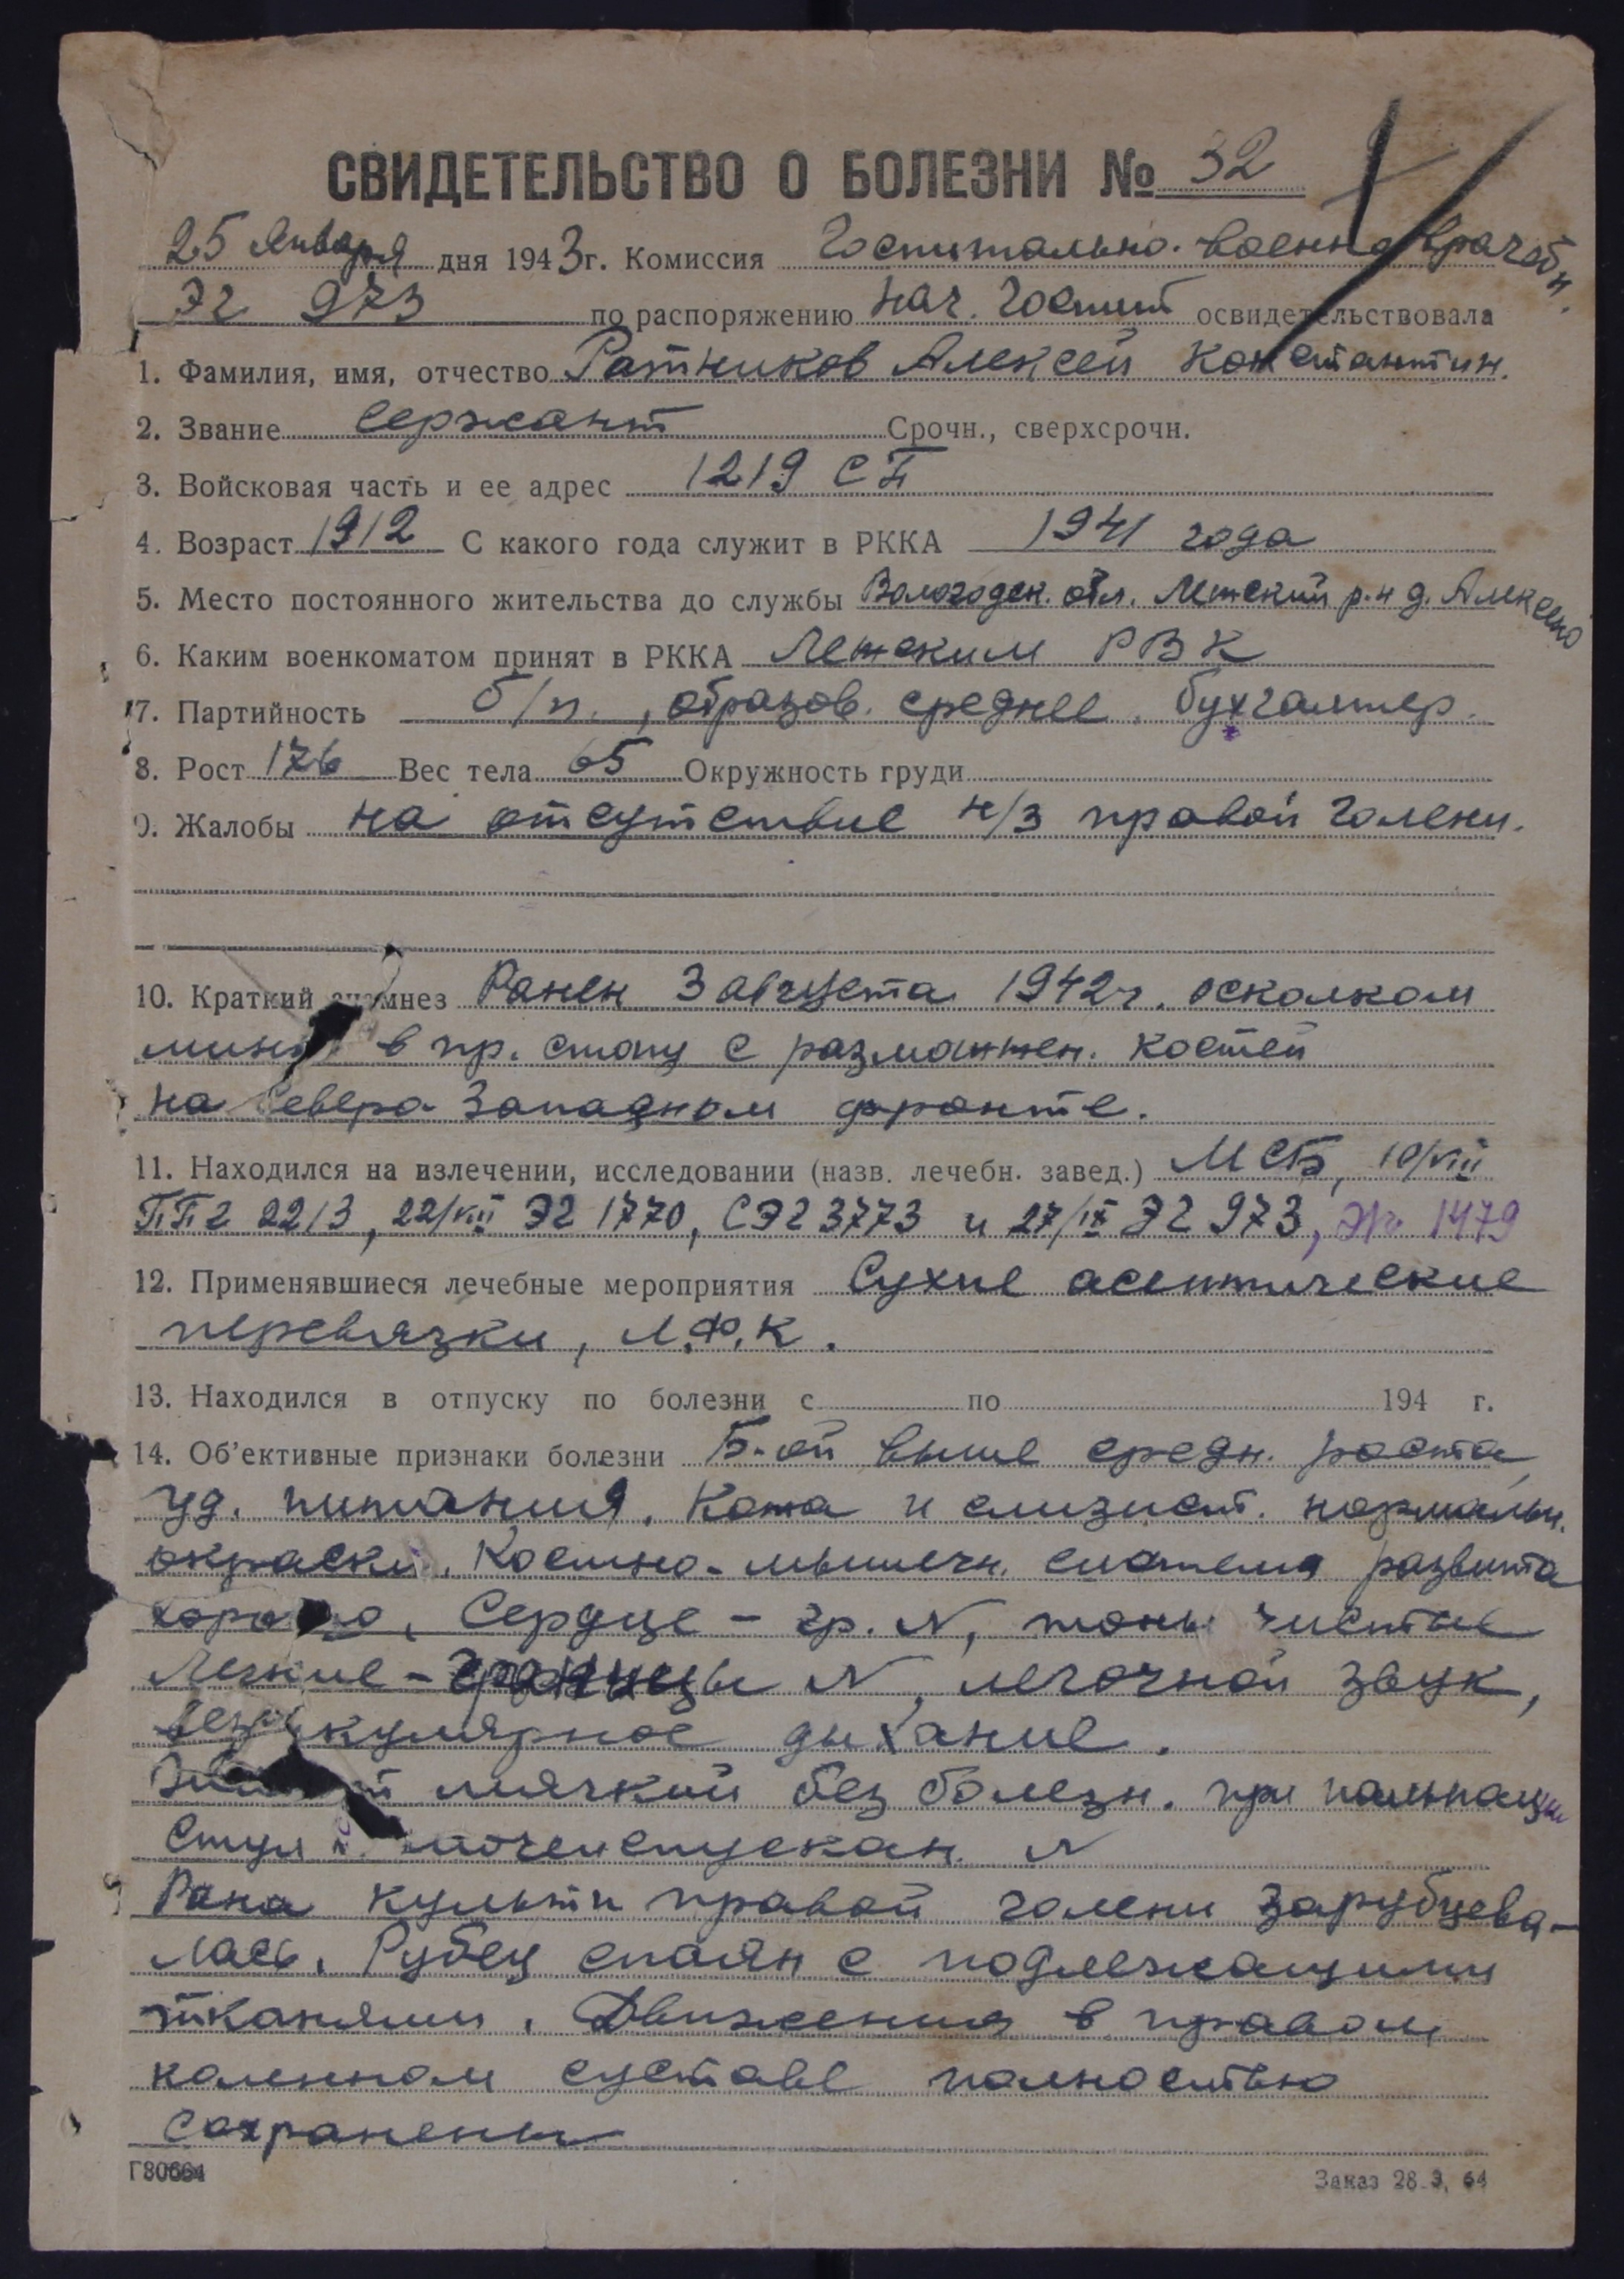 СВИДЕТЕЛЬСТВО О БОЛЕЗНИ № 32
25 января дня 1943 г. Комиссия Госпитально-военно врачебн.
ЭГ 973 по распоряжению нач. госпит освидетельствовала
1. Фамилия, имя, отчество Ратников Алексей Константин.
2. Звание сержант Срочн., сверхсрочн.
3. Войсковая часть и ее адрес 1219 СП
4. Возраст 1912 С какого года служит в РККА 1941 года
5. Место постоянного жительства до службы Вологодск. обл. р-н д.
6. Каким военкоматом принят в РККА РВК
7. Партийность б/п., образов. среднее. бухгалтер.
8. Рост 176 Вес тела 65 Окружность груди
9. Жалобы на отсутствие н/з правой голени.
10. Краткий анамнез Ранен 3 августа 1942 г. осколком
мины в пр. стопу с размозжен. костей
на Северо-Западном фронте.
11. Находился на излечении, исследовании (назв. лечебн. завед.) МСБ, 10/VIII
ППГ 2213, 22/VIII ЭГ 1770, СЭГ 3773 и 27/IX ЭГ 973, ЭГ 1479
12. Применявшиеся лечебные мероприятия Сухие асептические
перевязки, Л.Ф.К.
13. Находился в отпуску по болезни с по 194 г.
14. Об'ективные признаки болезни Б-ой выше средн. роста,
уд. питания. Кожа и слизист. нормальн.
окраски. Костно-мышечн. система развита
хорошо. Сердце - гр. N, тоны чистые
Легкие - границы N, легочной звук,
везикулярное дыхание.
Живот мягкий без болезн. при пальпации
Стул и мочеиспускан. N
Рана культи правой голени зарубцева-
лась. Рубец спаян с подлежащими
тканями. Движения в правом
коленном суставе полностью
сохранены
Г80664
Заказ 28 3, 64